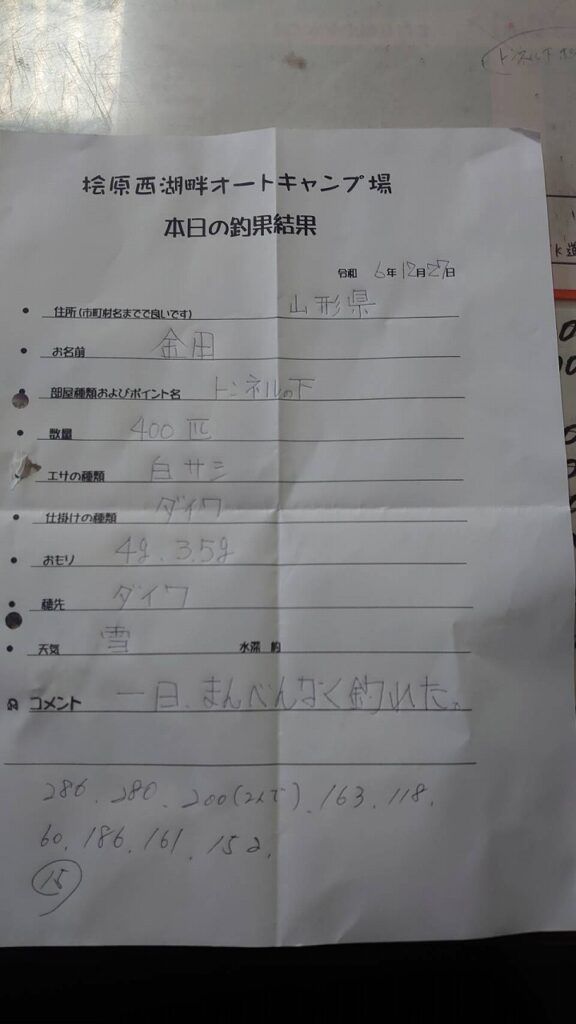 トンネル下
桧原西湖畔オートキャンプ場
本日の釣果結果
令和 6年12月27日
• 住所(市町村名までで良いです) 山形県
• お名前 金田
• 部屋種類およびポイント名 トンネルの下
• 数量 400匹
• エサの種類 白サシ
• 仕掛けの種類 ダイワ
• おもり 4g、3.5g
• 穂先 ダイワ
• 天気 雪 水深 約
コメント 一日、まんべんなく釣れた。
286、280、200(2人で)、163、118、
60、186、161、152、
15